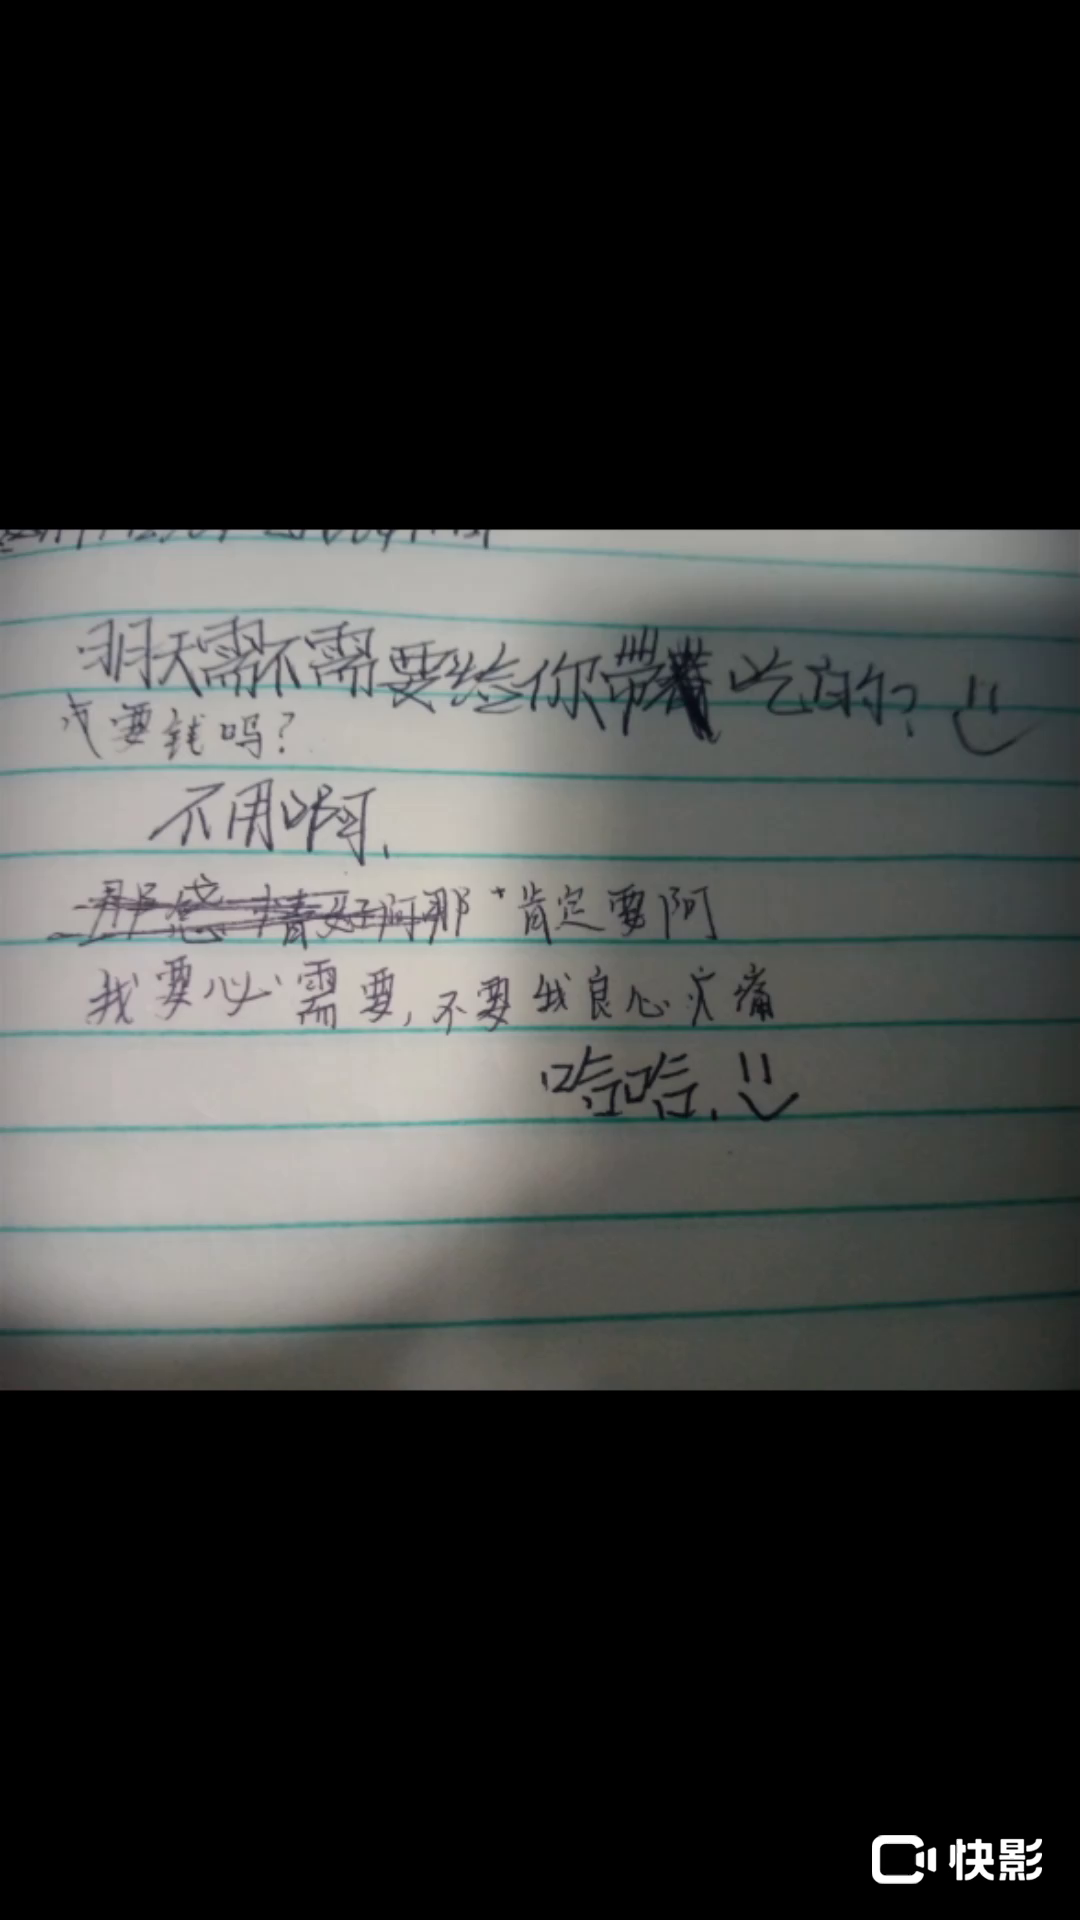 明天需不需要给你带吃的?
要钱吗?
不用啊.
那感情好阿那 肯定要阿
我要必需要,不要我良心疼痛
哈哈.
快影